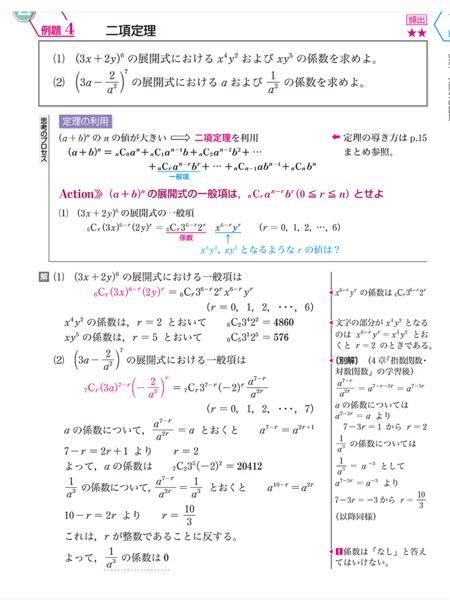 例題 4 二項定理
頻出
★★
(1) (3x+2y)⁶ の展開式における x⁴y² および xy⁵ の係数を求めよ。
(2) (3a − 2/a²)⁷ の展開式における a および 1/a³ の係数を求めよ。
思考のプロセス
定理の利用
(a+b)ⁿ の n の値が大きい ⟹ 二項定理を利用
(a+b)ⁿ = ₙC₀aⁿ + ₙC₁aⁿ⁻¹b + ₙC₂aⁿ⁻²b² + ⋯
+ ₙCᵣaⁿ⁻ʳbʳ + ⋯ + ₙCₙ₋₁abⁿ⁻¹ + ₙCₙbⁿ
一般項
← 定理の導き方は p.15
まとめ参照。
Action》 (a+b)ⁿ の展開式の一般項は，ₙCᵣaⁿ⁻ʳbʳ (0 ≦ r ≦ n) とせよ
(1) (3x+2y)⁶ の展開式の一般項
₆Cᵣ(3x)⁶⁻ʳ(2y)ʳ = ₆Cᵣ3⁶⁻ʳ2ʳ x⁶⁻ʳyʳ (r = 0, 1, 2, …, 6)
係数
x⁴y², xy⁵ となるような r の値は？
解 (1) (3x+2y)⁶ の展開式における一般項は
₆Cᵣ(3x)⁶⁻ʳ(2y)ʳ = ₆Cᵣ3⁶⁻ʳ2ʳx⁶⁻ʳyʳ
(r = 0, 1, 2, ･･･, 6)
x⁴y² の係数は，r = 2 とおいて ₆C₂3⁴2² = 4860
xy⁵ の係数は，r = 5 とおいて ₆C₅3¹2⁵ = 576
(2) (3a − 2/a²)⁷ の展開式における一般項は
₇Cᵣ(3a)⁷⁻ʳ(−2/a²)ʳ = ₇Cᵣ3⁷⁻ʳ(−2)ʳ a⁷⁻ʳ/a²ʳ
(r = 0, 1, 2, ･･･, 7)
a の係数について，a⁷⁻ʳ/a²ʳ = a とおくと a⁷⁻ʳ = a²ʳ⁺¹
7−r = 2r+1 より r = 2
よって，a の係数は ₇C₂3⁵(−2)² = 20412
1/a³ の係数について，a⁷⁻ʳ/a²ʳ = 1/a³ とおくと a¹⁰⁻ʳ = a²ʳ
10−r = 2r より r = 10/3
これは，r が整数であることに反する。
よって，1/a³ の係数は 0
◀ x⁶⁻ʳyʳ の係数は ₆Cᵣ3⁶⁻ʳ2ʳ
◀ 文字の部分が x⁴y² となる
のは x⁶⁻ʳyʳ = x⁴y² とお
くと r = 2 のときである。
◀〔別解〕 (4 章「指数関数・
対数関数」の学習後)
a⁷⁻ʳ/a²ʳ = a⁷⁻ʳ⁻²ʳ = a⁷⁻³ʳ
a の係数については
a⁷⁻³ʳ = a より
7−3r = 1 から r = 2
1/a³ の係数については
1/a³ = a⁻³ として
a⁷⁻³ʳ = a⁻³ より
7−3r = −3 から r = 10/3
(以降同様)
◀ 1 係数は「なし」と答え
てはいけない。